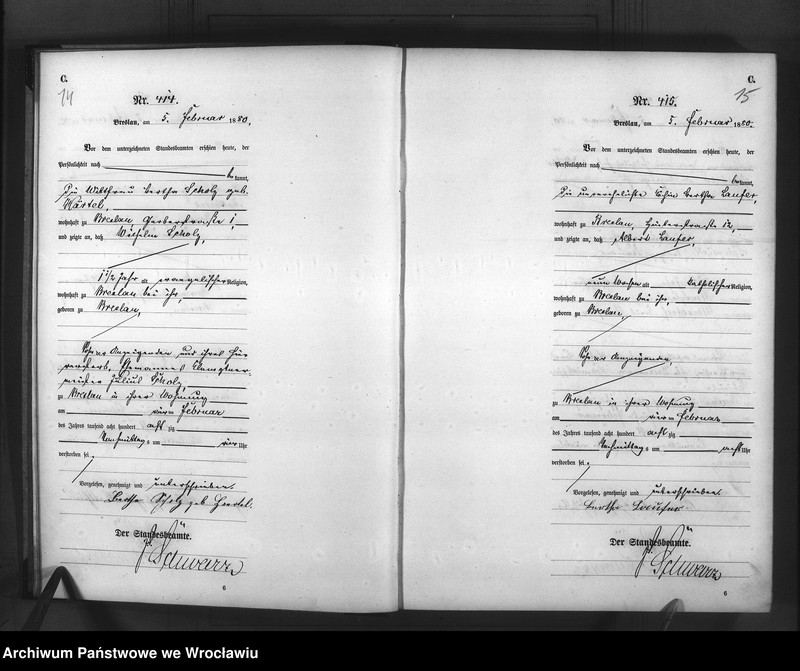 C.
14
Nr. 414.
Breslau, am 5. Februar 1880.
Vor dem unterzeichneten Standesbeamten erschien heute, der
Persönlichkeit nach
be kannt,
Die Wittfrau Bertha Scholz geb.
Härtel,
wohnhaft zu Breslau, Gerberstraße 1,
und zeigte an, daß Wilhelm Scholz,
1 1/2 Jahr alt, evangelischer Religion,
wohnhaft zu Breslau bei ihr,
geboren zu Breslau,
Sohn der Anzeigenden und ihres hier
verstorb. Ehemannes Klemptner-
meister Julius Scholz,
zu Breslau in ihrer Wohnung
am vierten Februar
des Jahres tausend acht hundert achtzig
Nachmittags um vier Uhr
verstorben sei.
Vorgelesen, genehmigt und unterschrieben.
Bertha Scholz geb Haertel.
Der Standesbeamte.
Schwarz
6
C.
15
Nr. 415.
Breslau, am 5. Februar 1880.
Vor dem unterzeichneten Standesbeamten erschien heute, der
Persönlichkeit nach
be kannt,
Die unverehelichte Bertha Laufer,
wohnhaft zu Breslau, 12,
und zeigte an, daß Albert Laufer,
neun Wochen alt katholischer Religion,
wohnhaft zu Breslau bei ihr,
geboren zu Breslau,
Sohn der Anzeigenden,
zu Breslau in ihrer Wohnung
am vierten Februar
des Jahres tausend acht hundert achtzig
Nachmittags um acht Uhr
verstorben sei.
Vorgelesen, genehmigt und unterschrieben.
Bertha
Der Standesbeamte.
Schwarz
6
Archiwum Państwowe we Wrocławiu